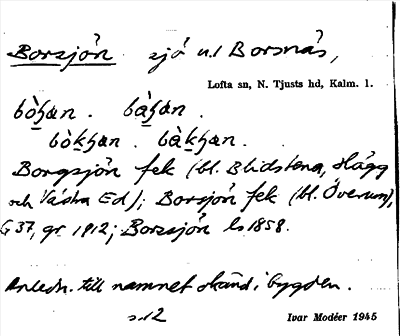 Borsjön sjö n.l Borsnäs,
Lofta sn, N. Tjusts hd, Kalm. l.
bòꜧan . bàꜧan .
bòkꜧan . bàkꜧan .
Borgsjön fek (bl. Blidstena, Hägg
och Västra Ed); Borsjön fek (bl. Överum),
G 37, gr. 1912; Borsjön ls 1858.
Anledn. till namnet okänd i bygden.
s. 12
Ivar Modéer 1945